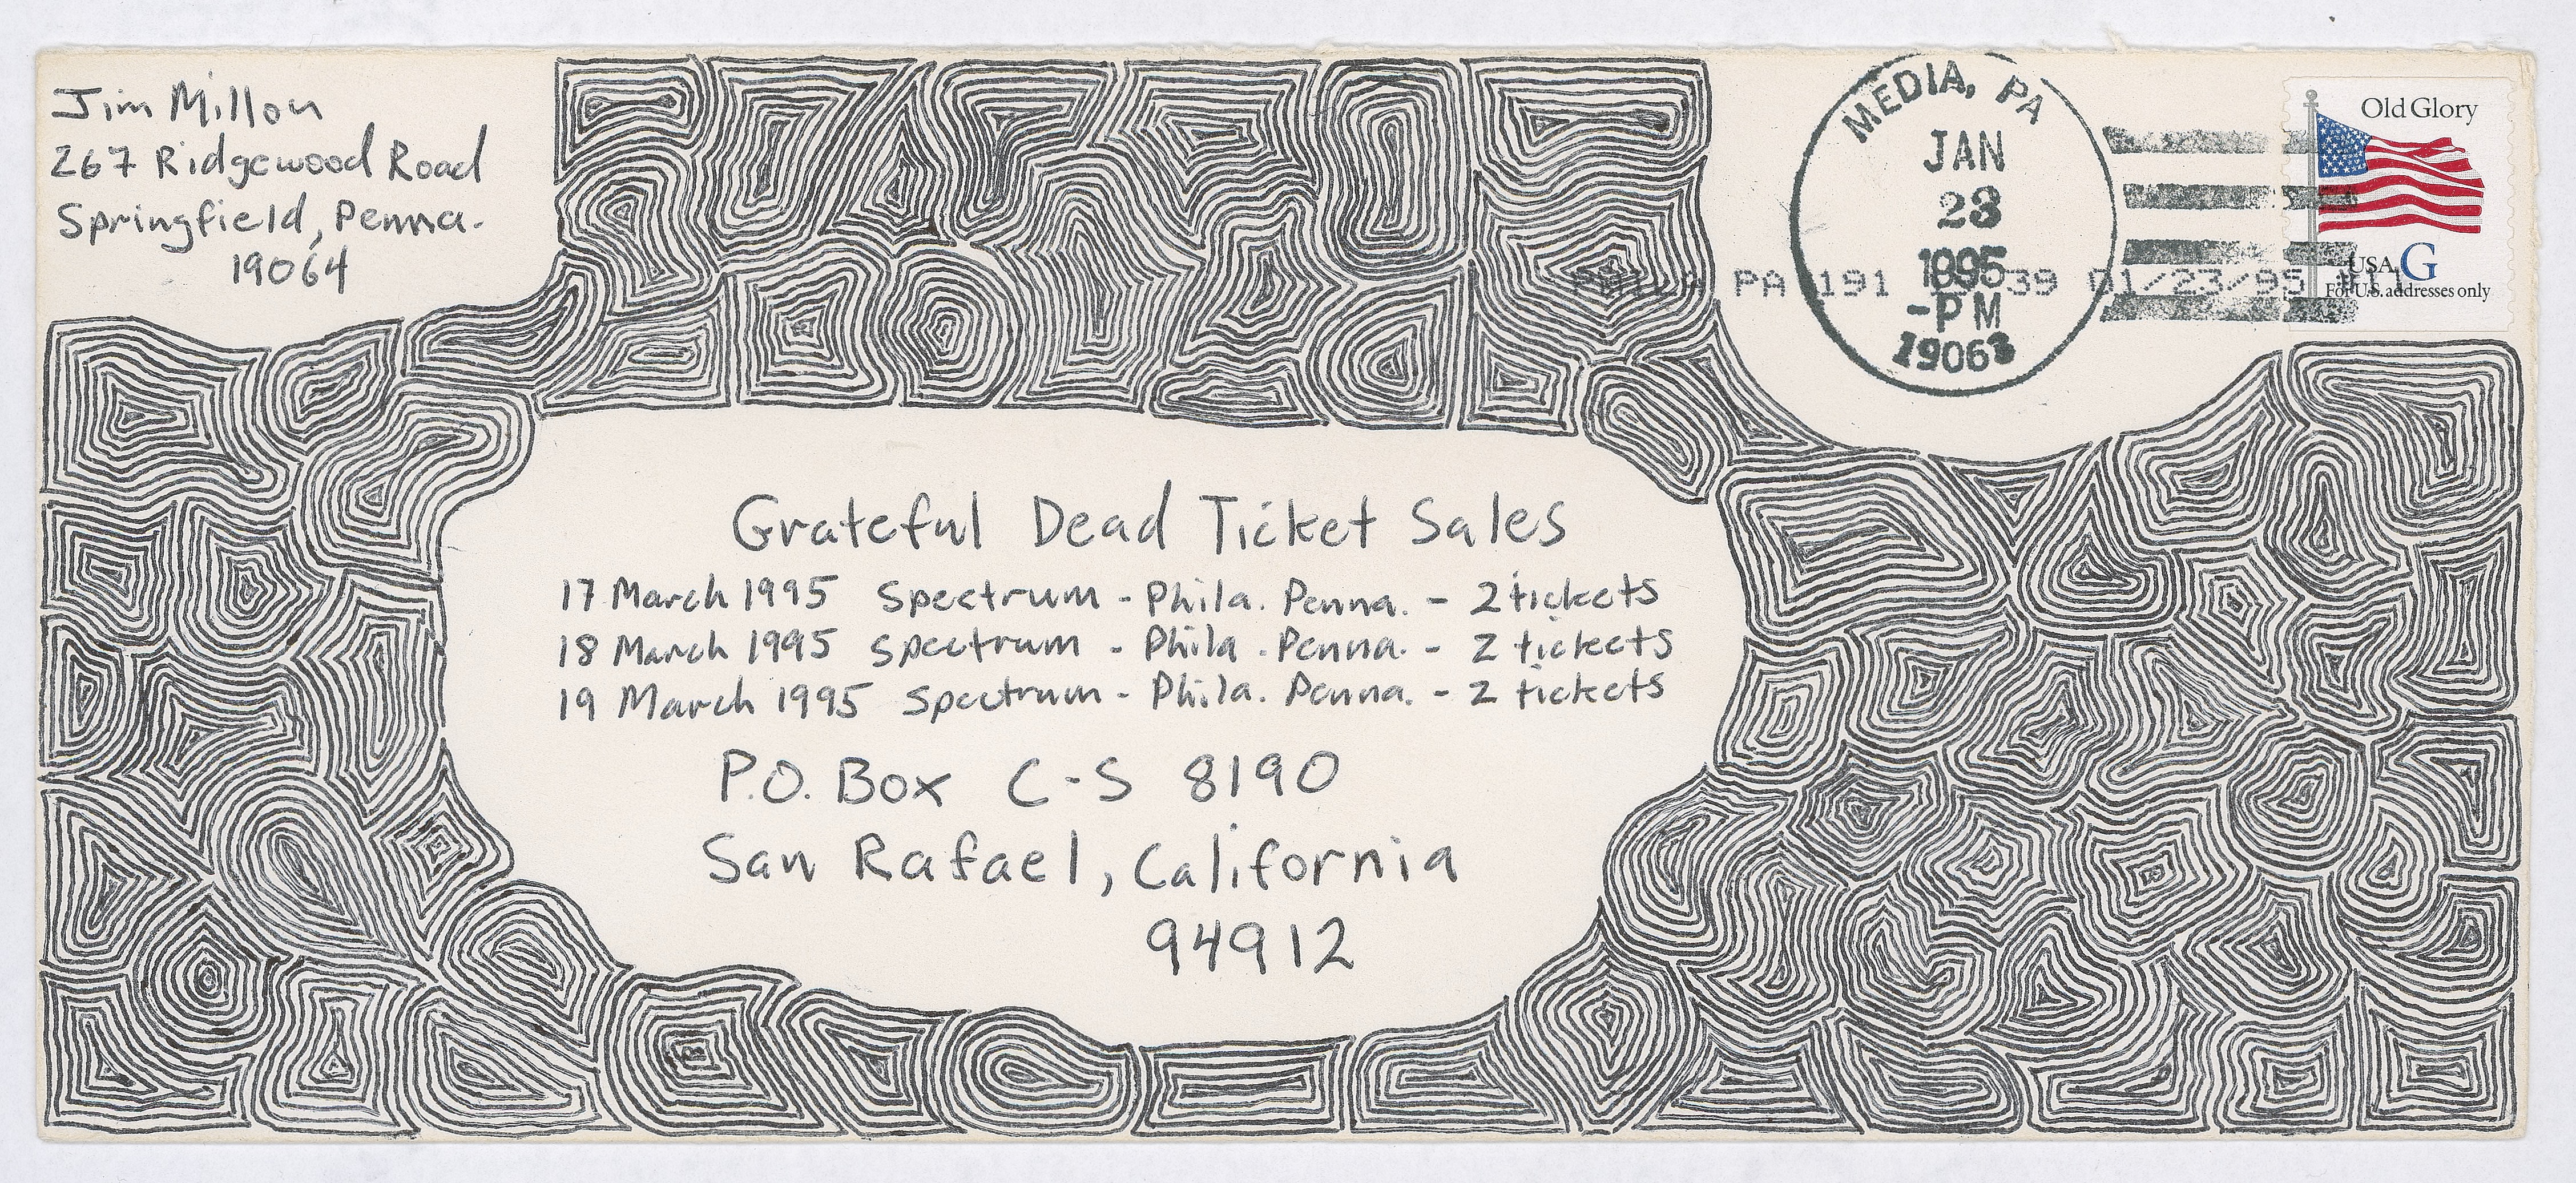 Jim Millon
267 Ridgewood Road
Springfield, Penna.
19064
MEDIA, PA
JAN
23
1995
-PM
19063
PA 191 39 01/23/95
Old Glory
USA G
For U.S. addresses only
Grateful Dead Ticket Sales
17 March 1995 Spectrum - Phila. Penna. - 2 tickets
18 March 1995 Spectrum - Phila. Penna. - 2 tickets
19 March 1995 Spectrum - Phila. Penna. - 2 tickets
P.O. Box C-S 8190
San Rafael, California
94912